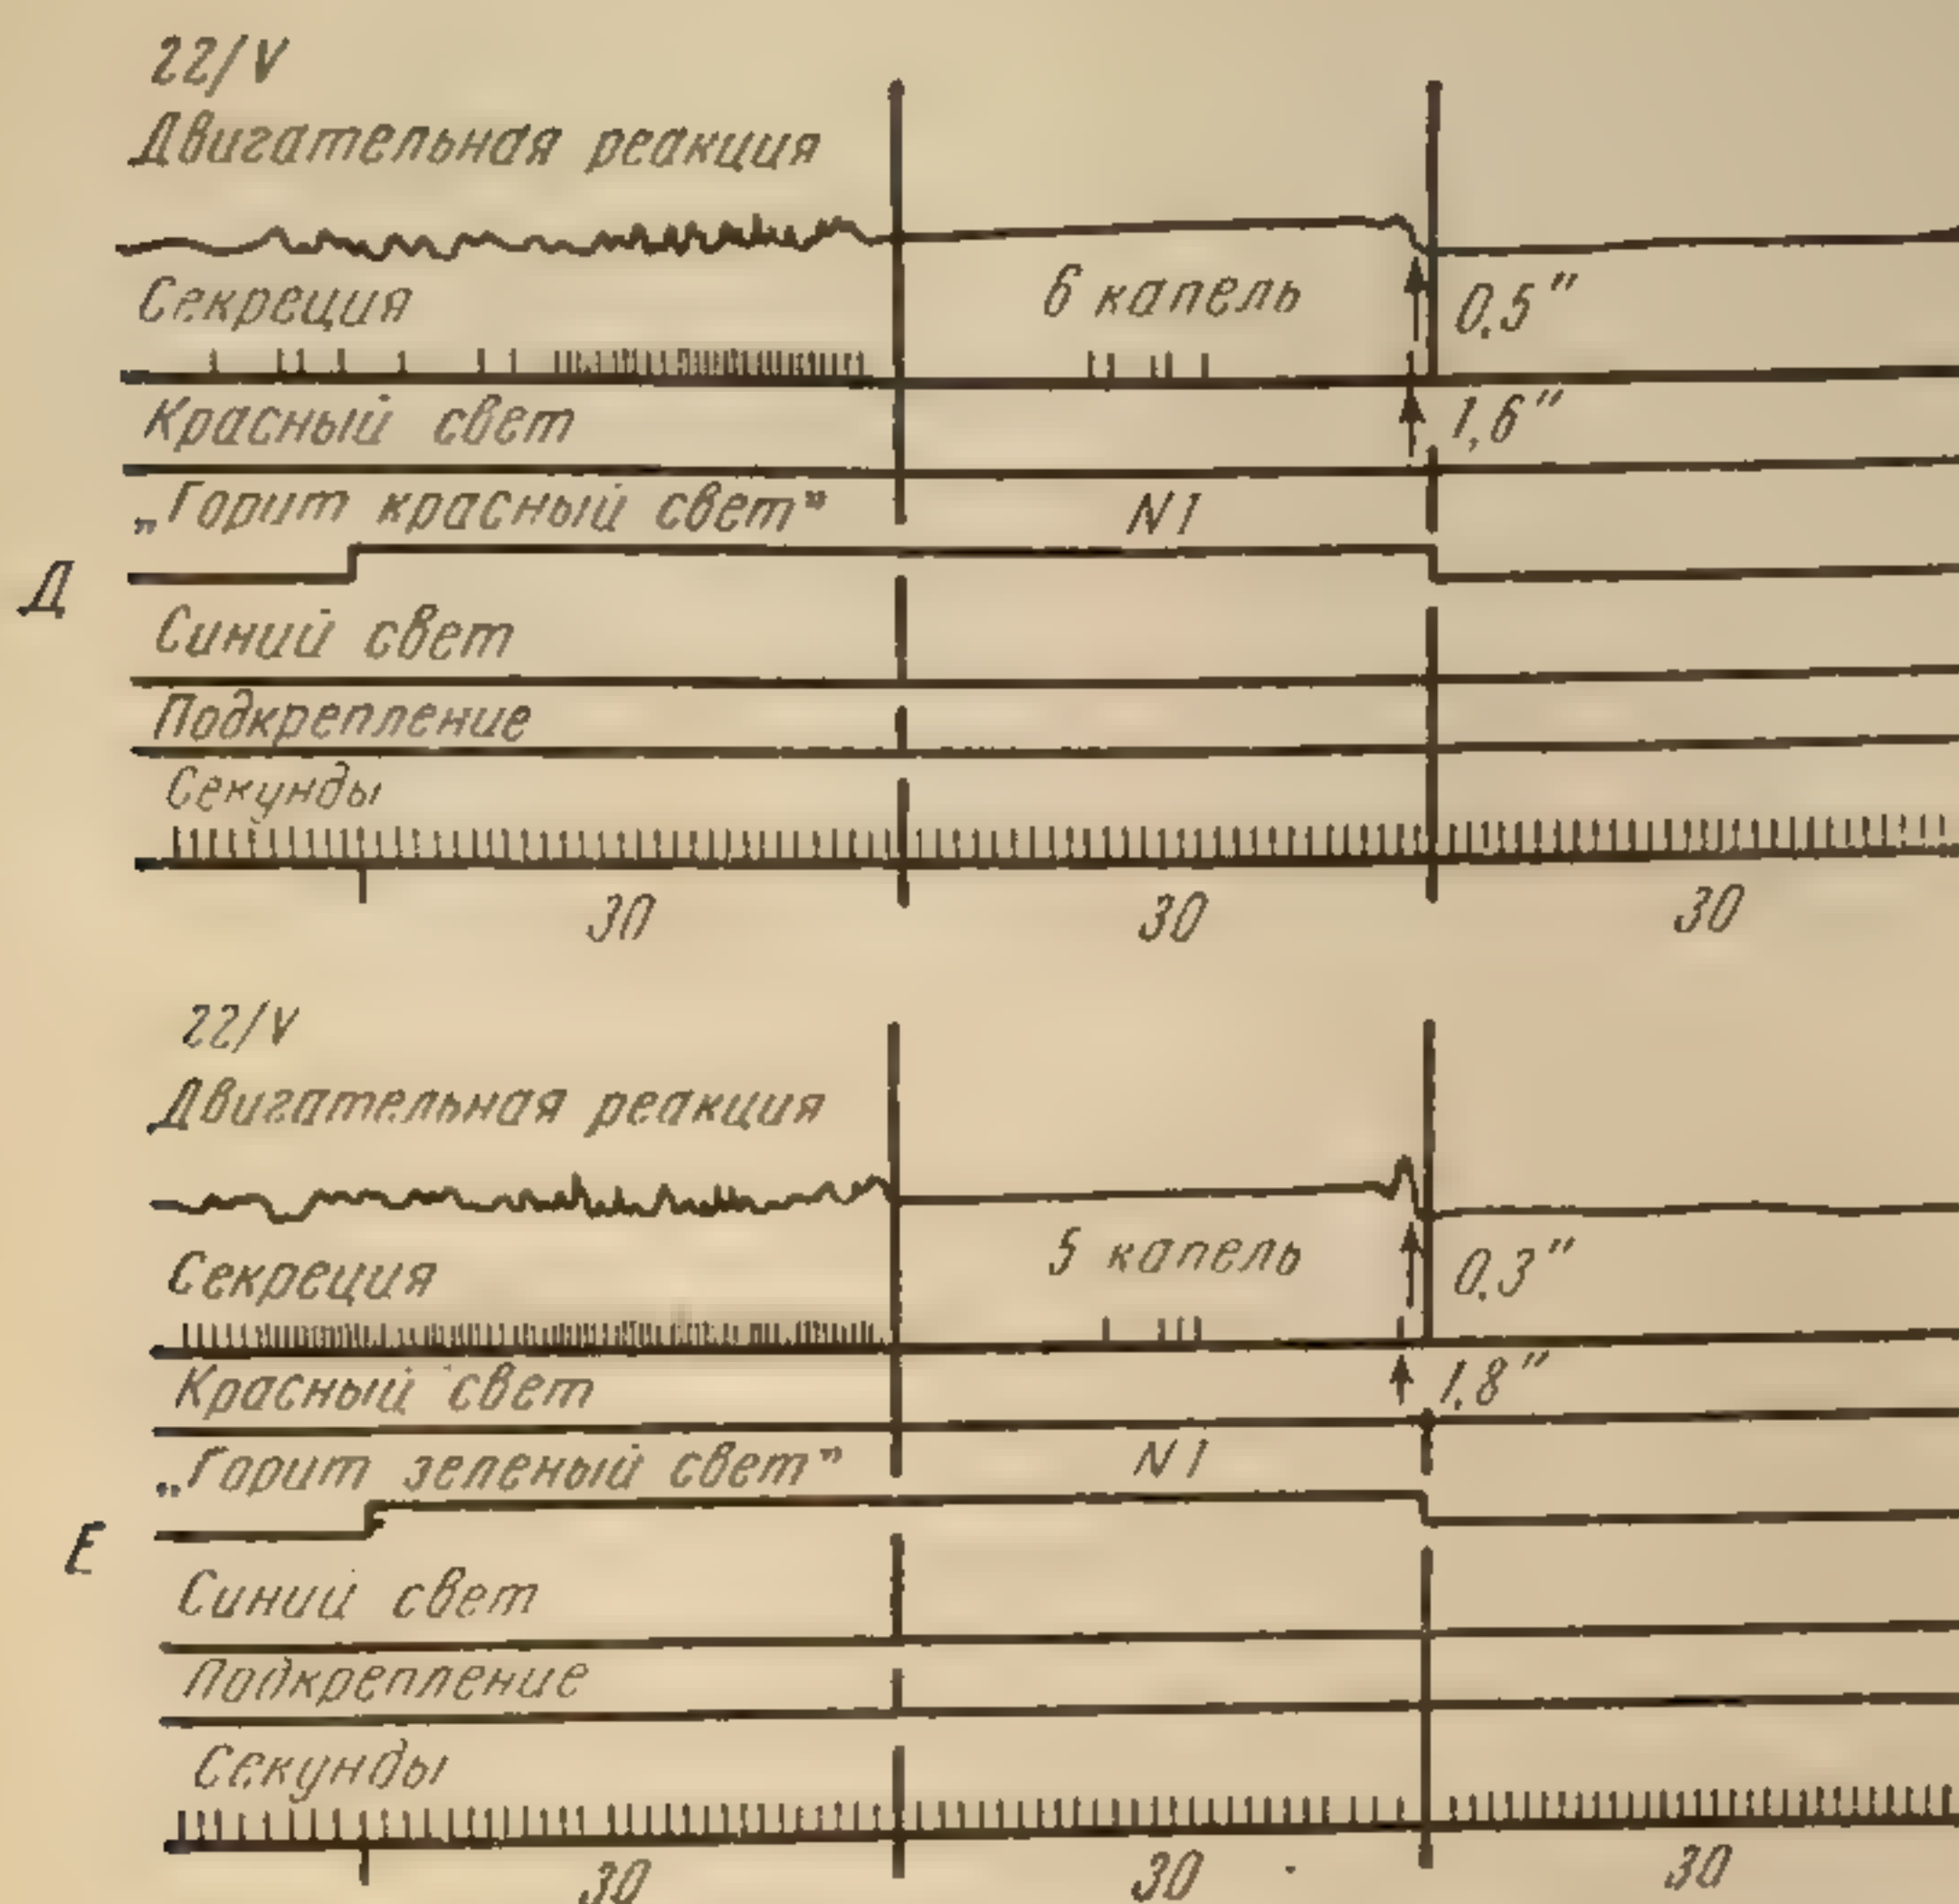 22/V
Двигательная реакция
Секреция 6 капель 0.5"
Красный свет 1,6"
„Горит красный свет" N1
Д
Синий свет
Подкрепление
Секунды
30 30 30
22/V
Двигательная реакция
Секреция 5 капель 0.3"
Красный свет 1.8"
„Горит зеленый свет" N1
Е
Синий свет
Подкрепление
Секунды
30 30 30